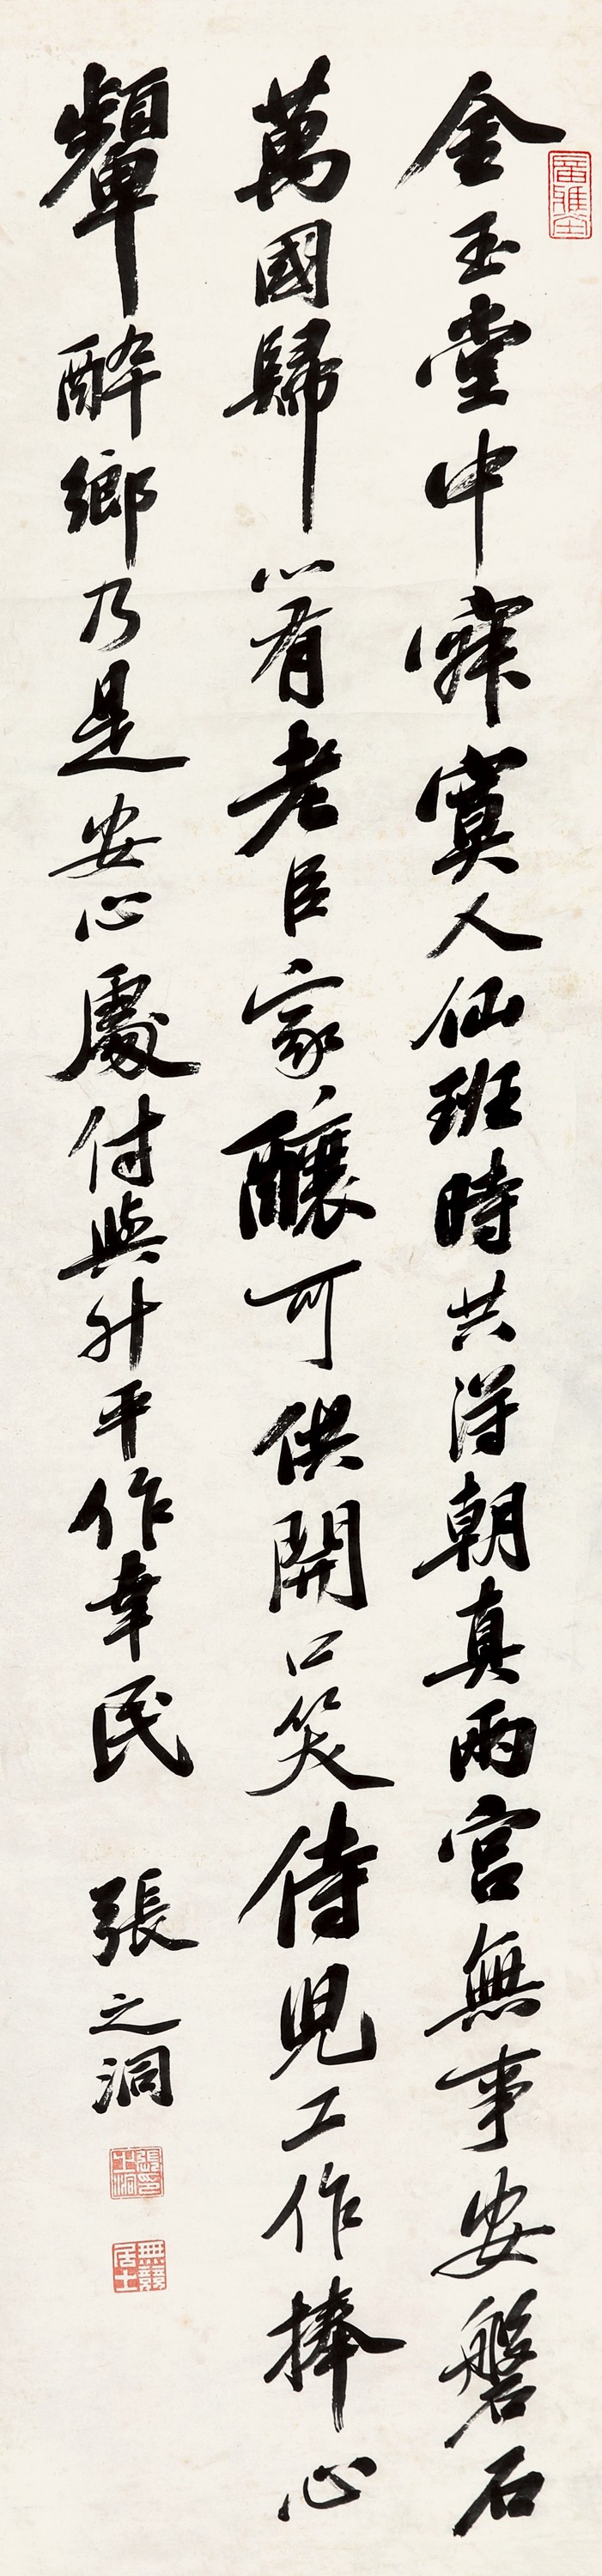 金玉堂中寂寞人仙班時共得朝真兩宮無事安磐石
萬國歸心有老臣家釀可供開口笑侍兒工作捧心
顰醉鄉乃是安心處付與升平作幸民
張之洞
張印之洞
無競居士